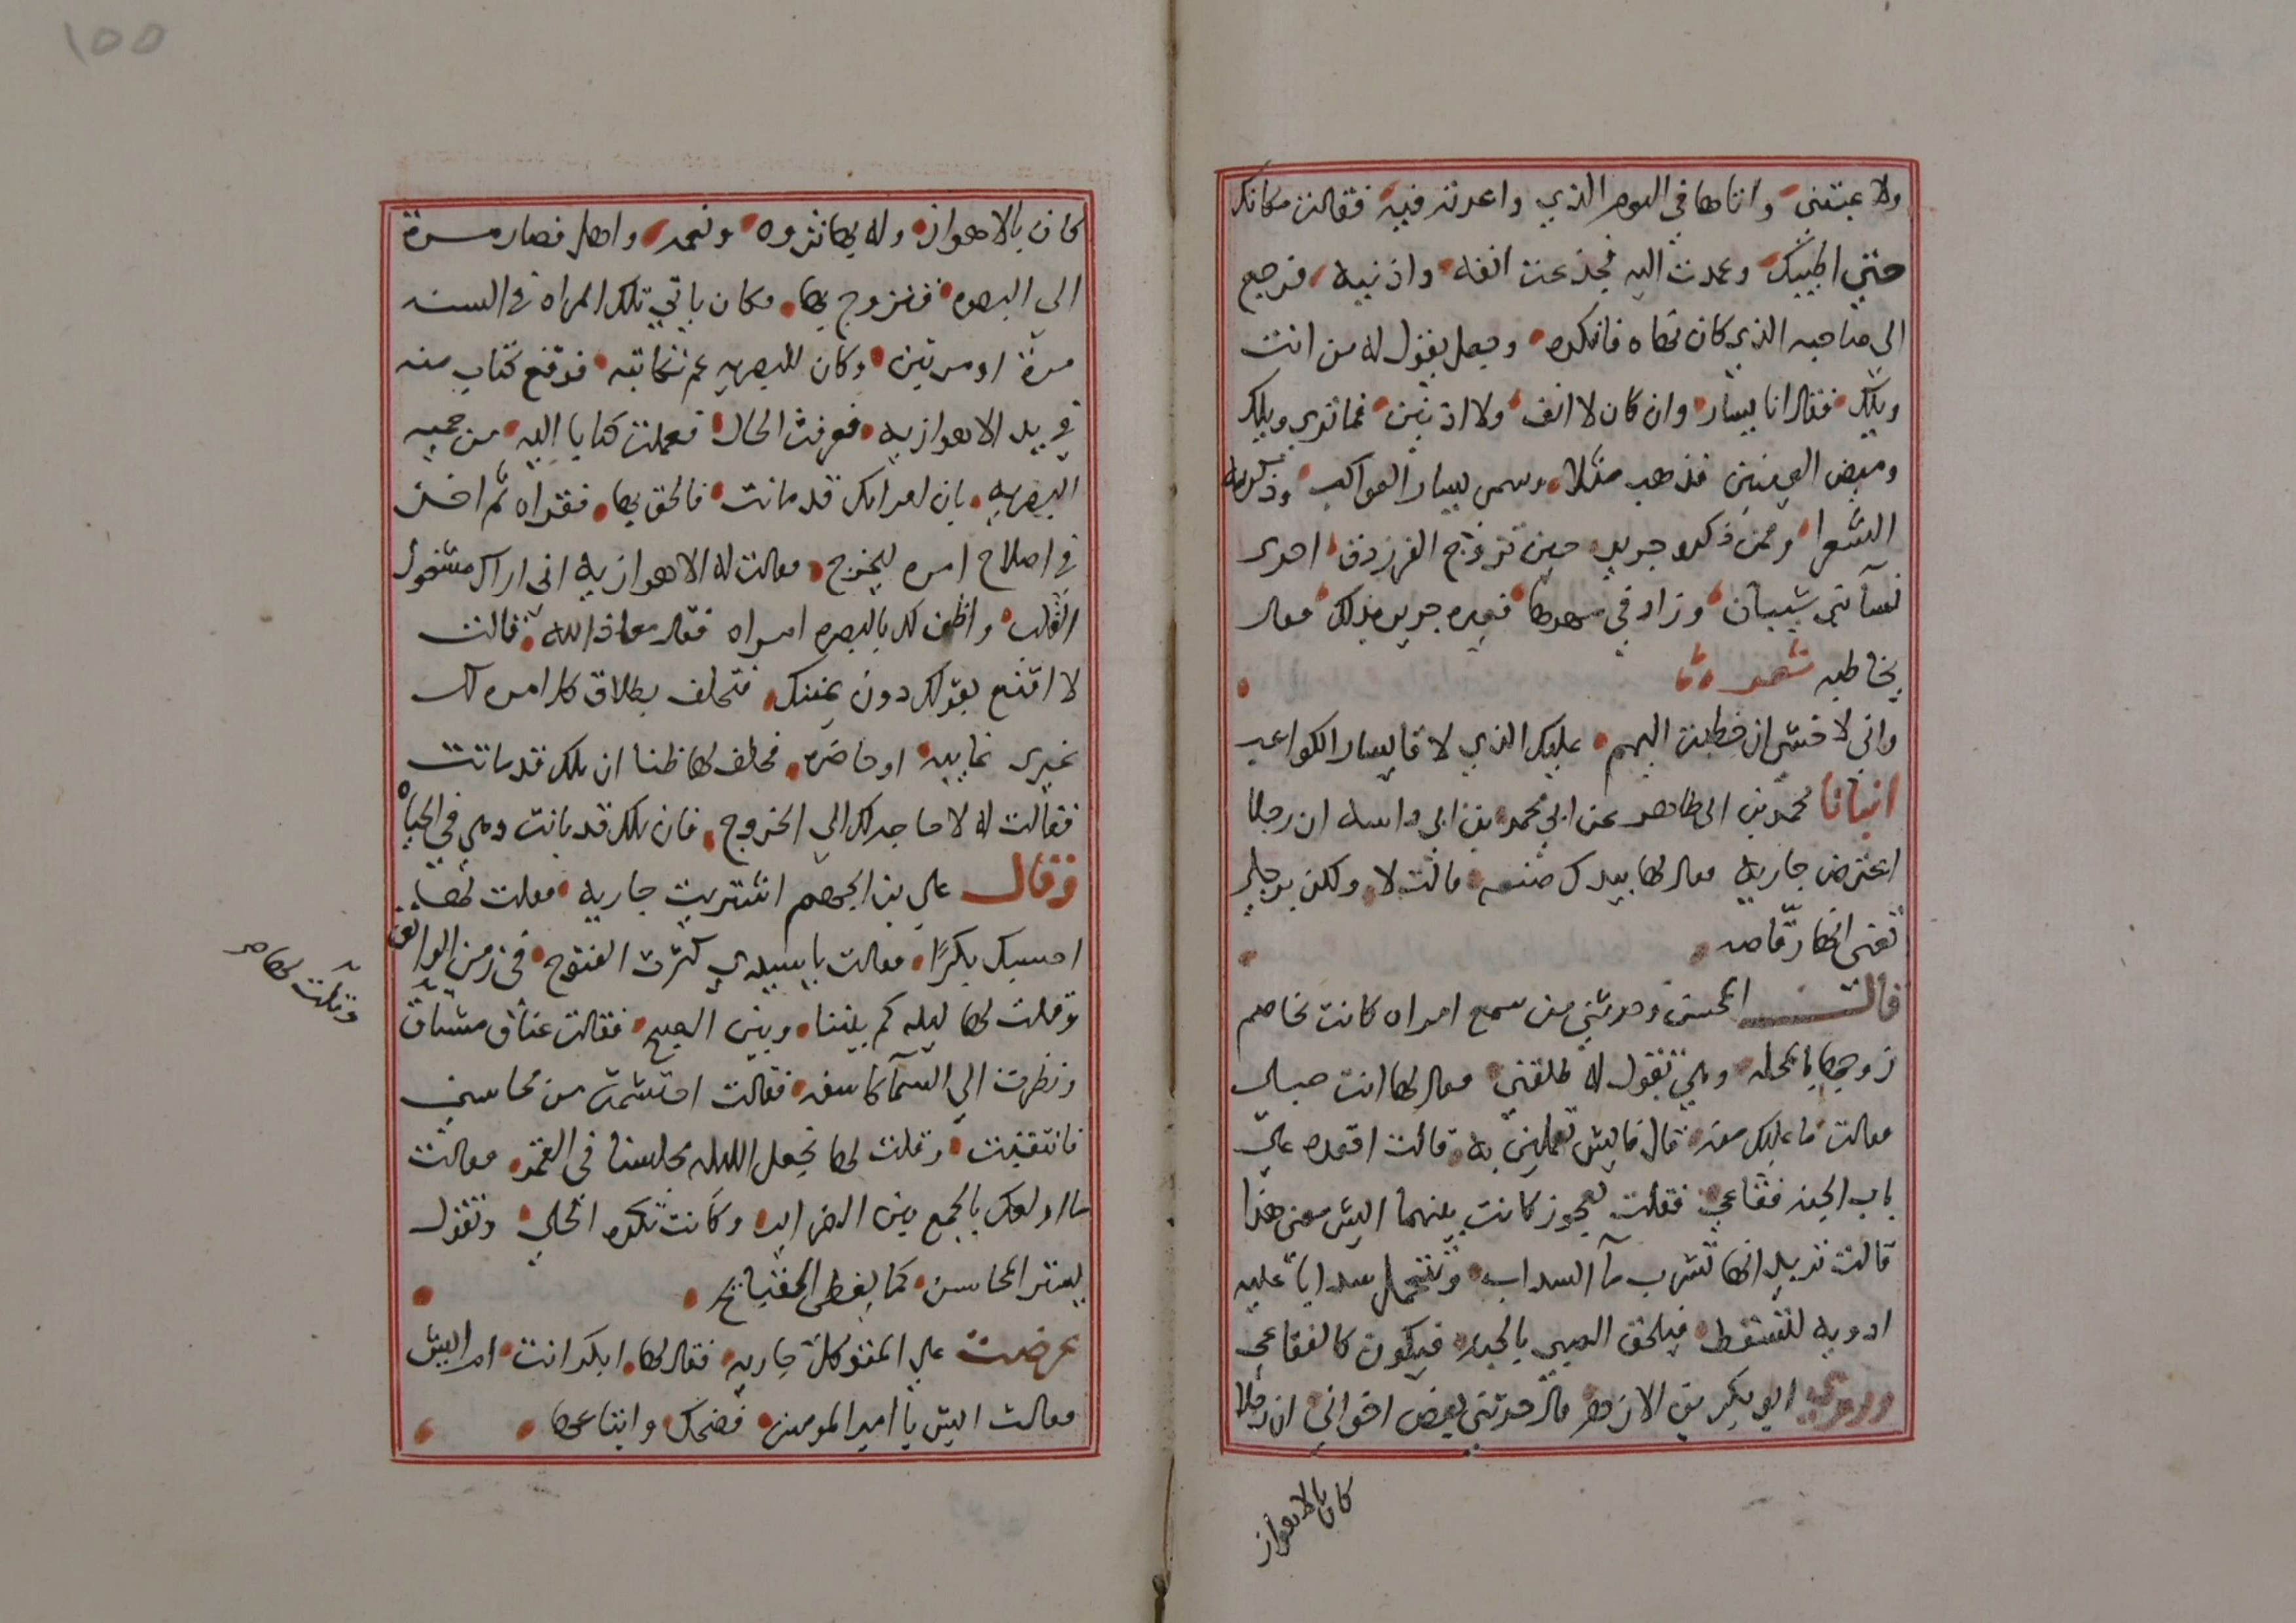 ولا عبتني واتاها في اليوم الذي واعدته فيه فقالت مكانك
حتي اطيبك وعمدت اليه فجذعت انفه واذنيه فرجع
الي صاحبه الذي كان نهاه فانكره وجعل يقول له من انت
ويلك فقال انا يسار وان كان لا انف ولا اذنين فما تري ويلك
وبيض العينين فذهب مثلا وسمي يسار الكواكب وذكرته
الشعرا وممن ذكره جرير حين تزوج الفرزدق احدى
نسآ بني شيبان وزاد في مهرها فعيره جرير بذلك فقال
يخاطبه شعر
واني لاخشى ان خطبت اليهم عليك الذي لاقا يسار الكواعب
انبانا محمد بن ابي طاهر عن ابي محمد بن ابي واسه ان رجلا
اعترض جاريه فقال لها بيدك صنعه قالت لا ولكن برجلي
تعني انها رقاصه
قالت المحسن وحدثني من سمع امراه كانت تخاصم
زوجها بالمحله وهي تقول له طلقني فقال لها انت حبلى
فقالت ما عليك منه قال فايش تعملين به قالت اقعده علي
باب الجنه فقاعي فقلت لعجوز كانت بينهما ايش معنى هذا
قالت تريد انها تشرب مآ السداب وتتحمل سدابا عليه
ادويه لتسقط فيلحق الصبي بالجنه فيكون كالفقاعي
وروي ابو بكر بن الازهر قال حدثني بعض اخواني ان رجلا
كان بالاهواز
155
كان بالاهواز وله بها ثروه ونعمه واهل فصار مرة
الى البصره فتزوج بها فكان ياتي تلك المراه في السنه
مرة او مرتين وكان للبصريه عم تكاتبه فوقع كتاب منه
في يد الاهوازيه فعرفت الحال فعملت كتابا اليه من حميه
البصريه بان امراتك قد ماتت فالحق بها فقراه ثم اخذ
في اصلاح امره ليخرج فقالت له الاهوازيه اني اراك مشغول
القلب واظن لك بالبصره امراه فقال معاذ الله قالت
لا اقنع بقولك دون يمينك فتحلف بطلاق كل امره لك
غيري غايبه او حاضره فحلف لها ظنا ان تلك قد ماتت
فقالت له لا حاجه لك الي الخروج فان تلك قد بانت وهي في الحياه
وقال علي بن الجهم اشتريت جاريه فقلت لها
احسبك بكرًا فقالت يا سيدي كثرت الفتوح في زمن الواثق
وقلت لها ليله كم بيننا وبين الصبح فقالت عناق مشتاق
ونظرت الي السمآ كاسفه فقالت احتشمت من محاسني
فانتقبت وقلت لها نجعل الليله مجلسنا في القمر فقالت
ما اولعك بالجمع بين الضراير وكانت تكره الحلي وتقول
يستر المحاسن كما يغطي القبايح
عرضت علي المتوكل جاريه فقال لها ابكر انت ام ايش
فقالت ايش يا امير المومنين فضحك وابتاعها
وقلت لها